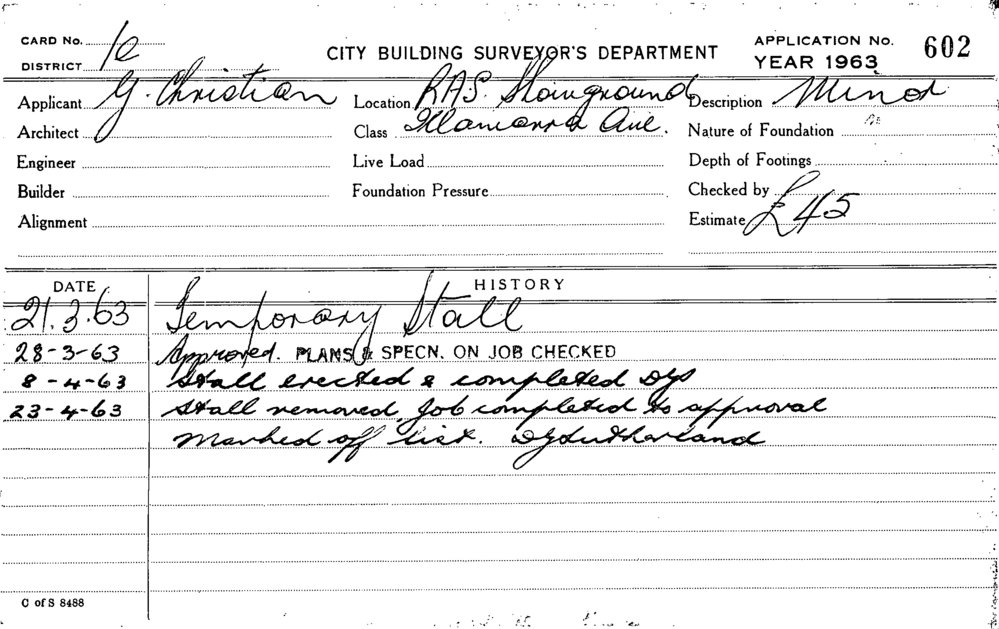 CARD No. 1c
DISTRICT
CITY BUILDING SURVEYOR'S DEPARTMENT
APPLICATION No. 602
YEAR 1963
Applicant G. Christian
Location RAS. Showground
Description Minor
Architect
Class Illawarra Ave.
Nature of Foundation
Engineer
Live Load
Depth of Footings
Builder
Foundation Pressure
Checked by
Alignment
Estimate £45
DATE HISTORY
21.3.63 Temporary Stall
28-3-63 Approved. PLANS & SPECN. ON JOB CHECKED
8-4-63 Stall erected & completed DJS
23-4-63 Stall removed, Job completed to approval
Marked off list. DJSutherland
C of S 8488